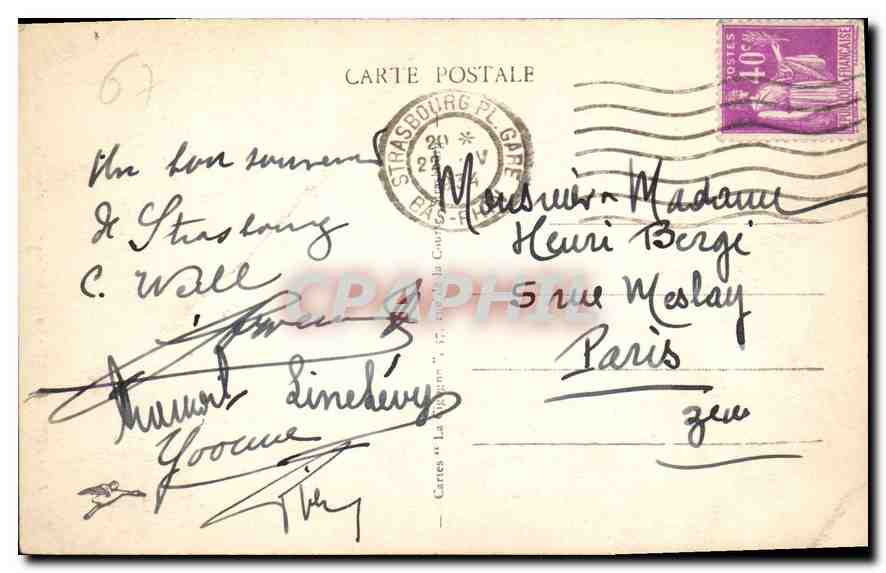 67
CARTE POSTALE
POSTES
40c
RÉPUBLIQUE FRANÇAISE
STRASBOURG PL. GARE
20 *
22 V
34
BAS-RHIN
Un bon souvenir
de Strasbourg
C. Well
Linchévy
Yvonne
Monsieur Madame
Henri Bergi
5 rue Meslay
Paris
3ème
Cartes " La Cigogne ", 37, rue de la Course
CPAPHIL